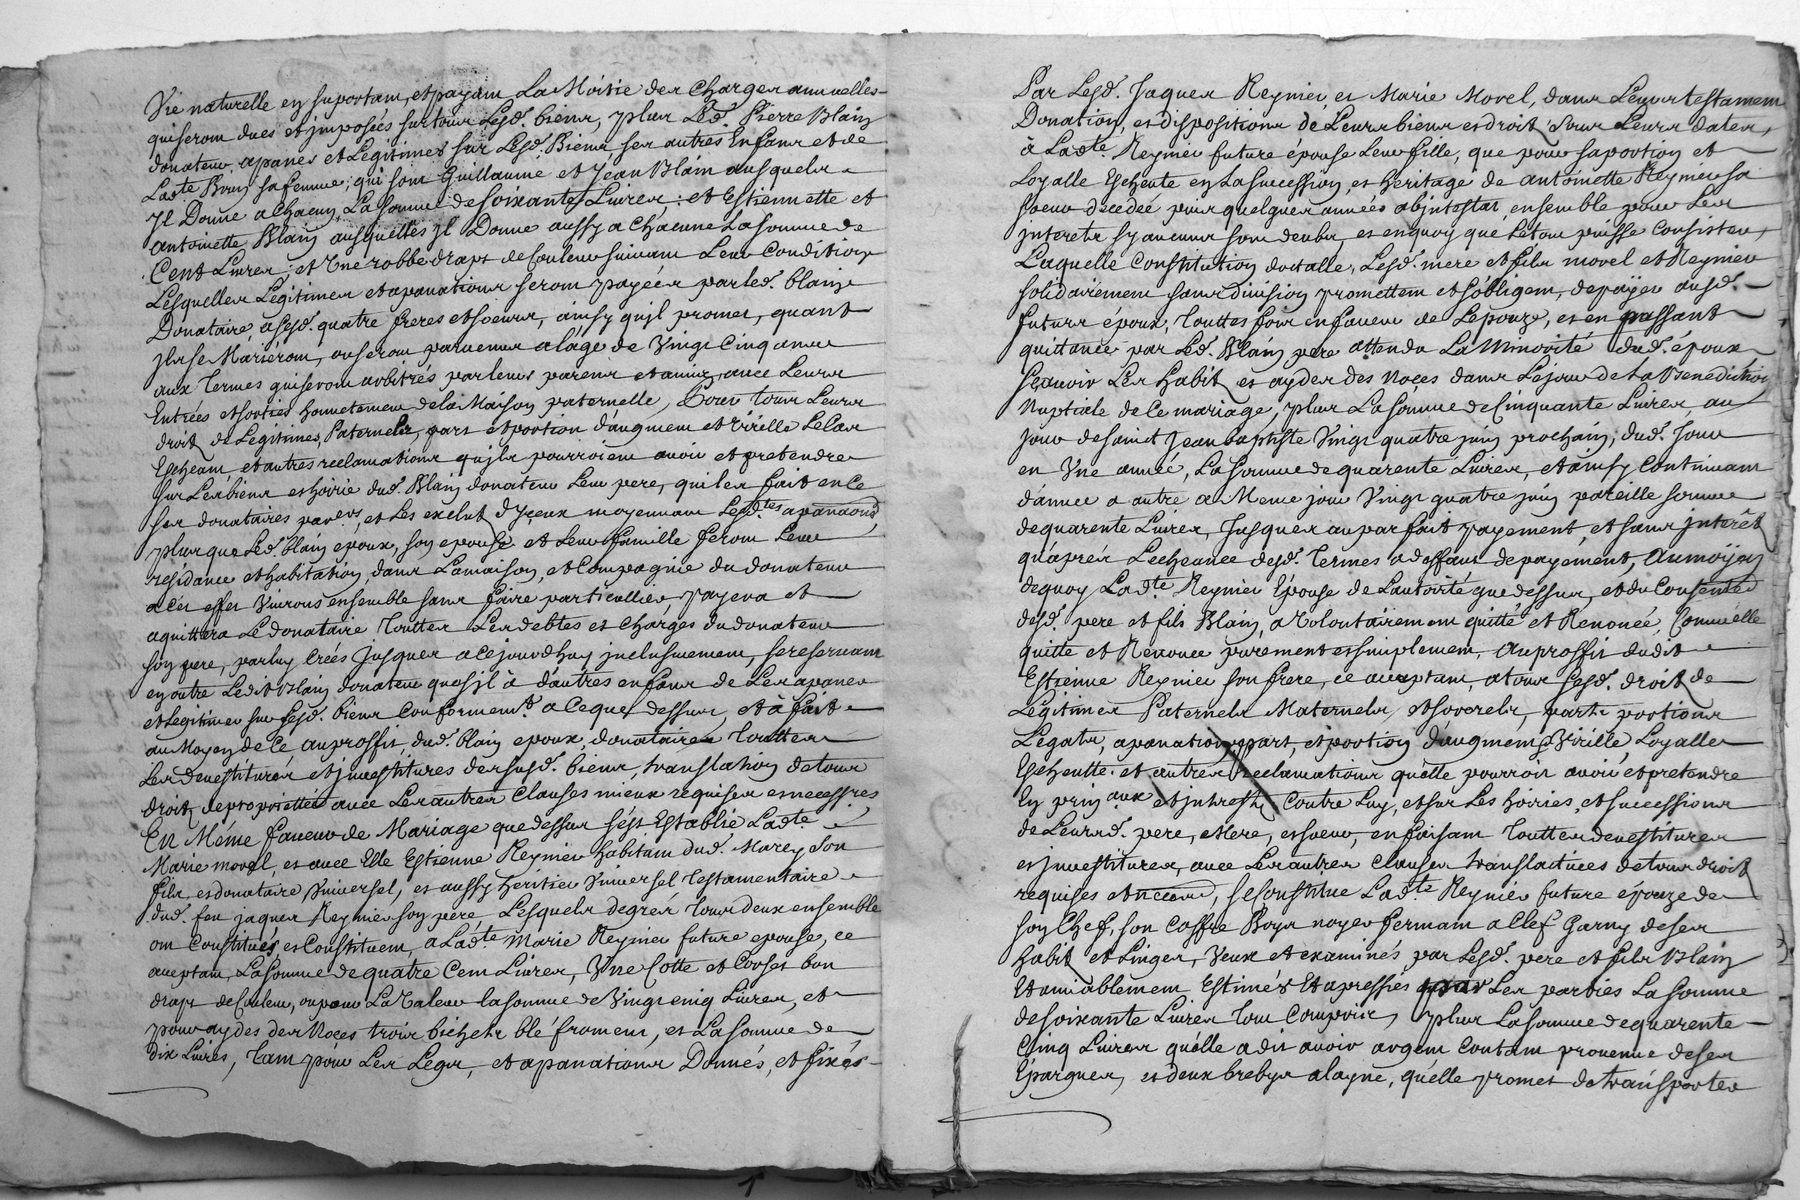 Vie naturelle en suportant, et payant La Moitie des Charges annuelles
qui seront dues et jmposées sur tous Lesd. biens, plus Led. Pierre Blain
donateur, apanes et Legitimes sur Lesd. Biens ses autres Enfans et de
Ladte Bouy sa femme; qui sont Guillaume et Jean Blain ausquels
Jl Donne a Chacun, La somme de soixante Livres; et Estiennette et
antoinette Blain ausquelles jl Donne aussy a Chacune La somme de
Cent Livres; et Une robbe draps de Couleur suivant Leur Condition,
Lesquelles Légitimes et apanations seront payées par led. blain
Donataire a sesd. quatre freres et soeurs, ainsy qu'jl promet, quant
jls se Mariéront, ou seront parvenus a l'age de Vingt Cinq ans
aux Termes qui seront arbitrés par leurs parens et amis, avec Leurs
Entrées et sorties honnetement de la Maison paternelle, Pour Tous Leurs
droits de Légitimes Paternels, part et portion d'augment et Virille Le Cas
Echeant, et autres reclamations qu'jls pourroient avoir et pretendre
sur Les biens et hoirie dud. Blain donateur Leur pere, qui les fait en Ce
ses donataires parers, et Les exclut d'Jceux moyennant Lesdtes apanaons,
plus que Led. blain epoux, son epouse et Leur famille feront Leur
residance et habitation, dans La maison, et Compagnie du donateur
a Cet effet Vivrons ensemble sans faire particullier, payera et
aquittera Le donataire Touttes Les debtes et Charges du donateur
son pere, par luy Crées Jusques a Ce jourdhuy jnclusivement, se reservant
en outre Ledit Blain donateur quoi s'jl à d'autres enfans de Les apaner
et Legitimer sur sesd. biens Conformemt. a Ce que dessus, et à fait
au Moyen de Cé au proffit, dud. blain epoux, donataire Touttes
Les devestitures et jnvestitures de susd. biens, translation de tous
droits de proprietté avec Les autres Clauses mieux requises et necessres,
En Méme faveur de Mariage que dessus s'est Establie Ladte.
Marie movel, et avec Elle Estienne Reynier habitant dud. Marey son
fils et donataire Universel, et aussy héritier Universel Testamentaire
dud. feu jaques Reynier son pere, Lesquels de grés tous deux ensemble
ont Constitués, et Constituent, a Ladte Marie Reynier future epouse, ce
aceptant, La somme de quatre Cent Livres, Une Cotte et Corset bon
draps de Couleur, ou pour La Valeur la somme de Vingt cinq Livres, et
pour aydes des Noces trois bichets blé froment, et La somme de
dix Livres, Tant pour Les Legs, et apanations Donnés, et fixés
Par Lesd. Jaques Reynier, et Marie Movel, dans Leurs testament
Donation, et dispositions de Leurs biens et droit sous Leurs dates,
à Ladte. Reynier future épouse Leur fille, que pour sa portion et
Loyalle Echeute en La succession, et héritage de antoinette Reynier sa
soeur decedée puis quelques années abjntestat, ensemble pour Les
jnterets sy aucuns sont deubs, et en quoy que Le tout puisse Consister,
Laquelle Constitution dottalle, Lesd. mere et fils movel et Reynier
solidairement sans division promettent et s'obligent, de payer ausd.
futurs époux, Touttes fois en faveur de L'epouze, et en passant
quittance par Led. Blain pere attendu La Minorité dud. époux
sçavoir Les habits et aydes des Noces dans Le jour de La Benediction
Nuptiale de Ce mariage, plus La somme de Cinquante Livres, au
jour de saint Jean baptiste Vingt quatre juin prochain; dud. jour
en Une année, La somme de quarente Livres, et ainsy Continuant
d'annee a autre a Meme jour Vingt quatre juin pareille somme
de quarente Livres, Jusques au parfait payement, et sans jnterêt
qu'aprés L'echeance desd. Termes a deffaut de payement, Au moyen
de quoy Ladte. Reynier Epouse de L'autorité que dessus, et du Consentemt
desd. pere et fils Blain, a Volontairement quitté et Renoncé, Comme elle
quitte et Renonce purement et simplement, Au proffit dudit
Estienne Reynier son frere, ce aceptant, a tous sesd. droits de
Légitimes Paternels Maternels, et sororels, parts portions
Legats, apanations, part, et portion d'augment Virille, Loyalle
Echeutte et autres reclamations qu'elle pourroit avoir et pretendre
En prinaux et jnterests Contre Luy, et sur Les hoiries, et successions
de Leursd. pere, Mere, et soeur, en faisant Touttes devestitures
et jnvestitures, avec Les autres Clauses translatives de tous droits
requises et necess, se Constitue Ladte Reynier future épouze de
son Chef, son Coffre Boys noyer fermant a Clef Garny de ses
habits et Linges, Veux et examinés par Lesd. pere et fils Blain
Et amiablement Estimés Et apressiés par Les parties La somme
de soixante Livres Tout Compris, plus La somme de quarente
Cinq Livres qu'elle a dit avoir argent Contant provenue de ses
Epargnes, et deux brebys a layne, qu'elle promet de transporter